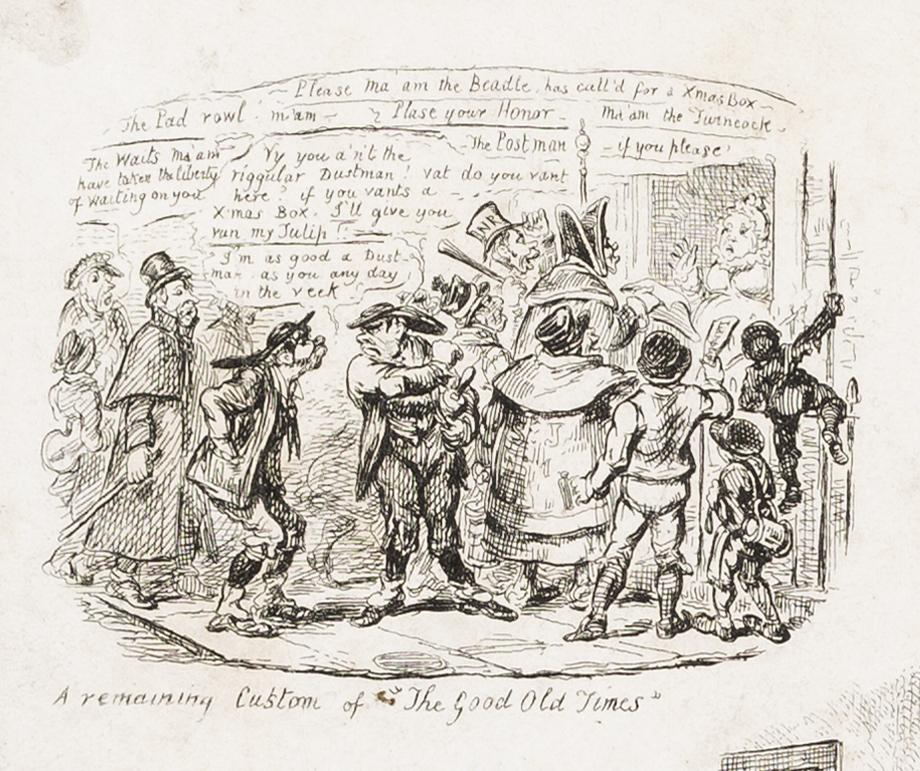 Please Ma'am the Beadle has call'd for a Xmas Box
The Pad rowl m'am
Plase your Honor
Ma'am the Turncock
if you please
The Postman
The Waits ma'am
have taken the liberty
of waiting on you
Vy you a'n't the
riggular Dustman! vat do you vant
here? if you vants a
X'mas Box. I'll give you
van my Tulip!
I'm as good a Dust-
man as you any day
in the veek
NR
A remaining Custom of "The Good Old Times"